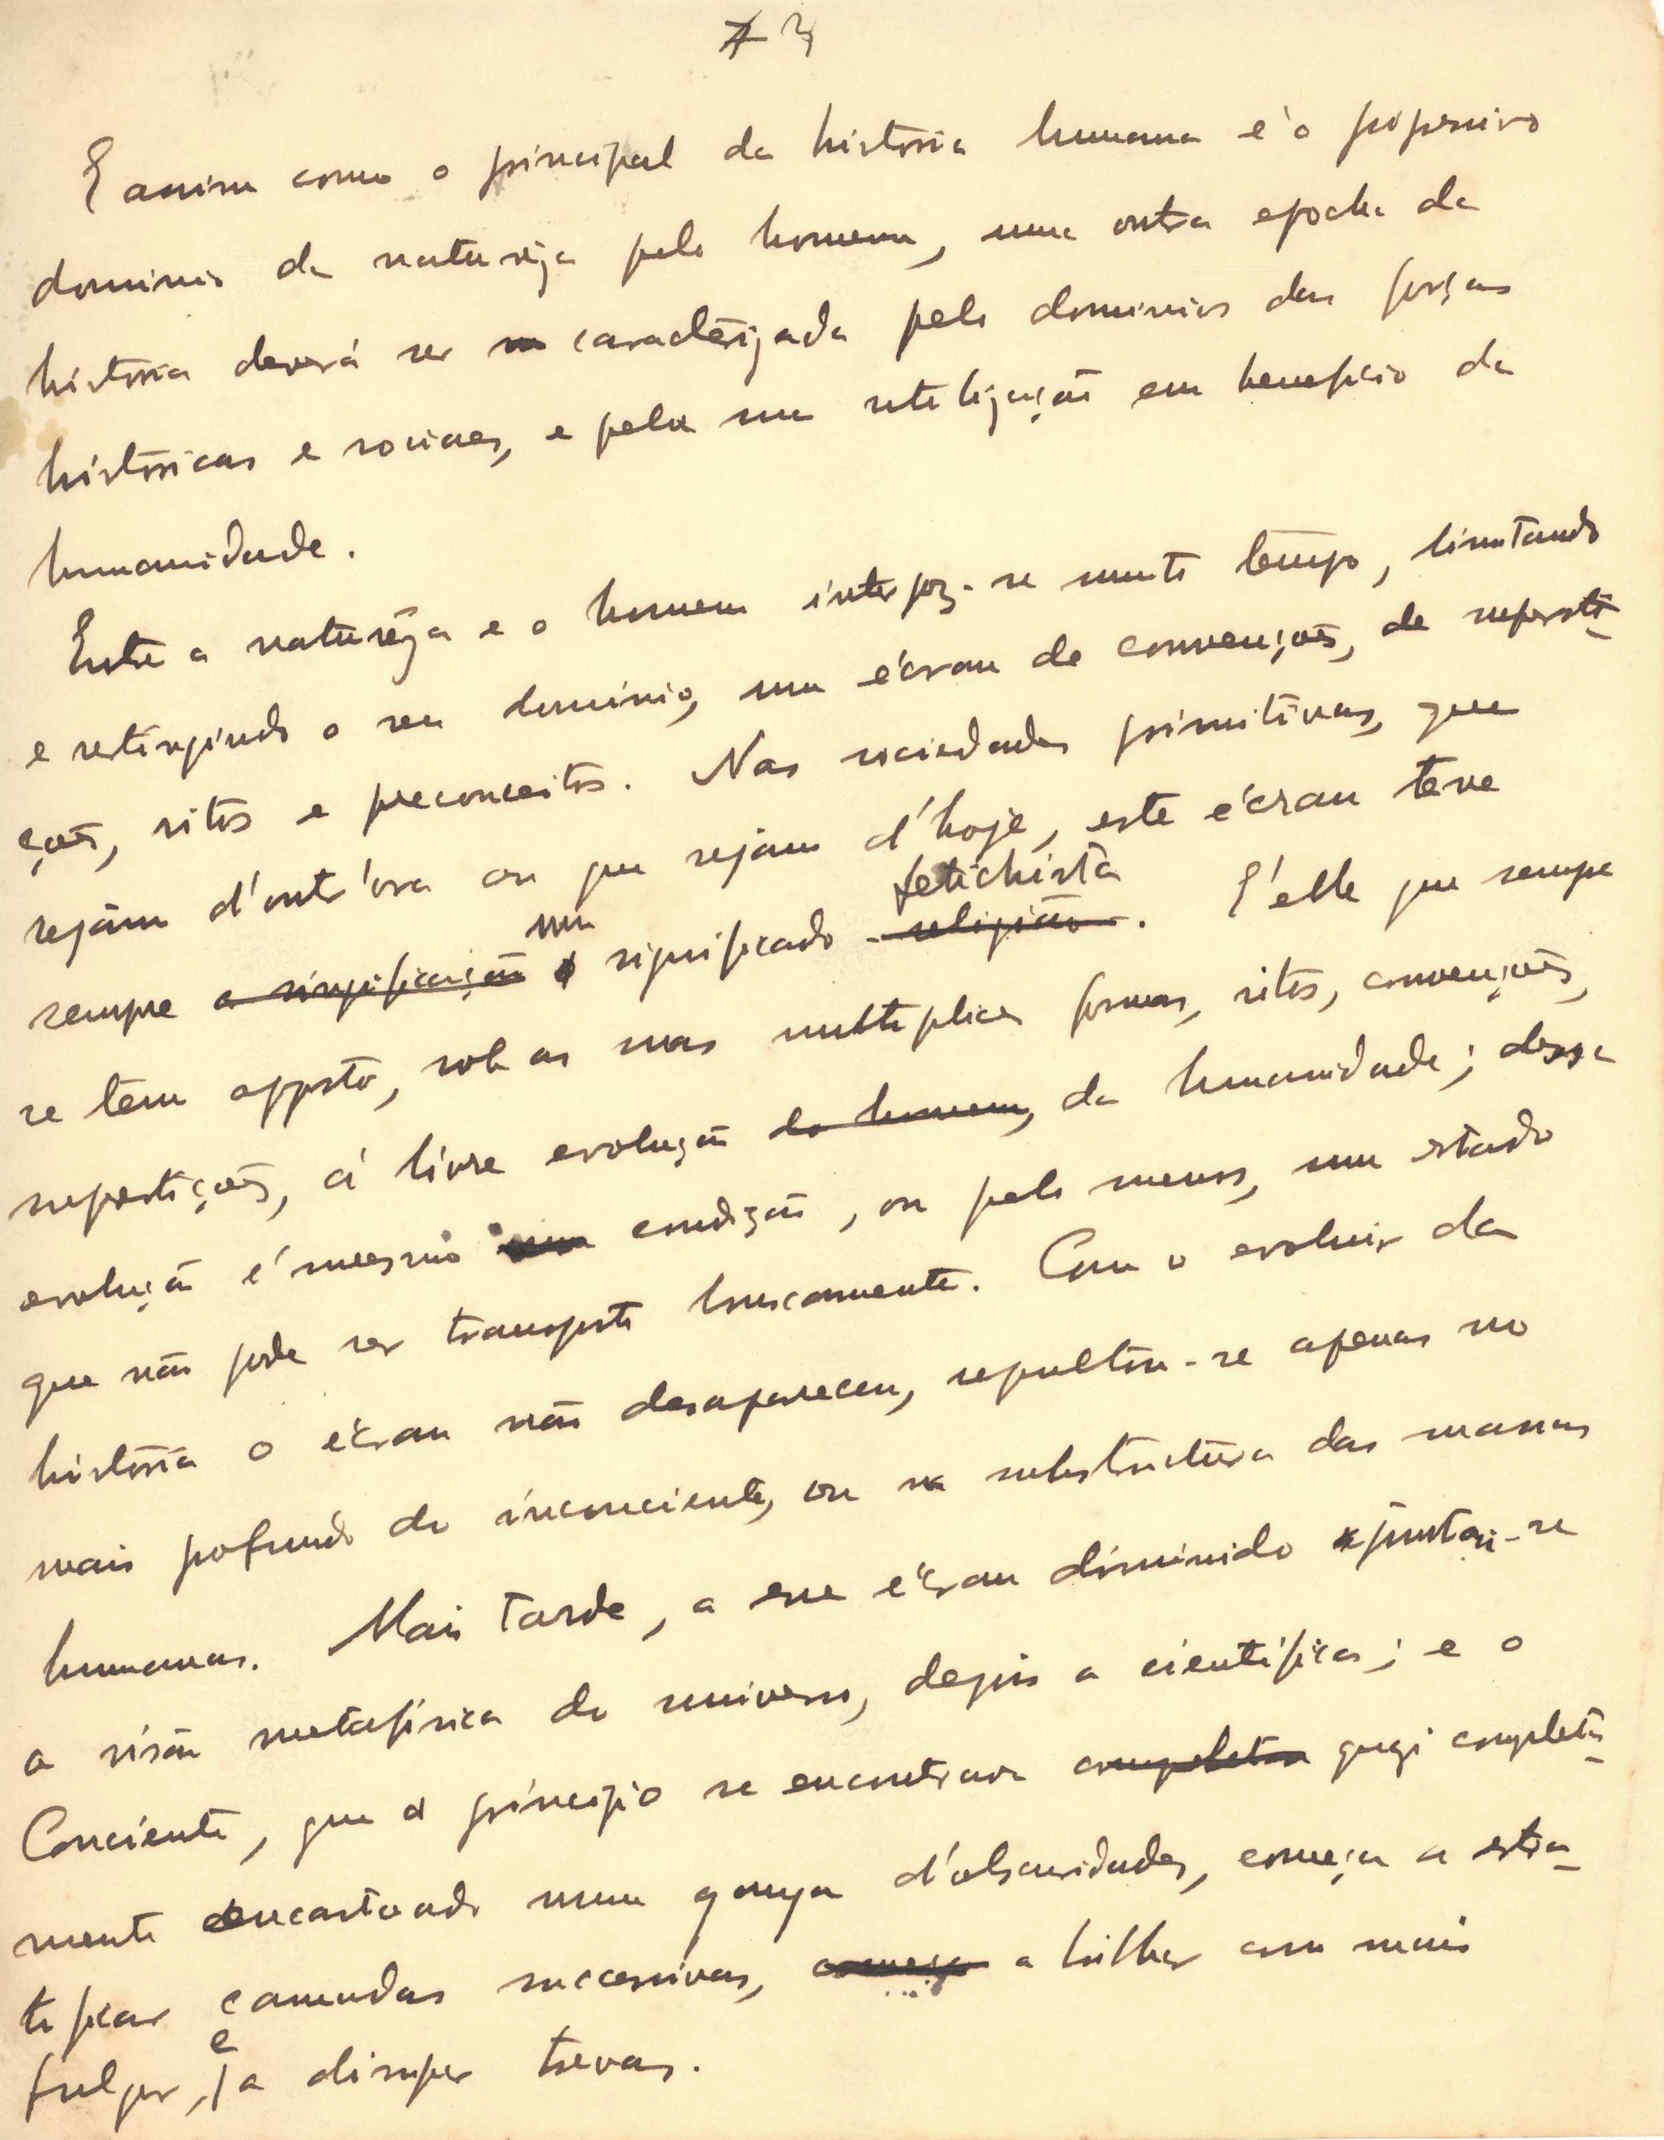 3
E assim como o principal da historia humana é o progressivo
dominio da naturêza pelo homem, uma outra epocha da
história deverá ser caracterizada pelo dominio das forças
históricas e sociaes, e pela sua utilização em beneficio da
humanidade.
Entre a naturêza e o homem interpoz-se muito tempo, limitando
e restingindo o seu dominio, um écran de convenções, de supersti-
ções, ritos e preconceitos. Nas sociedades primitivas, que
sejam d'outr'ora ou que sejam d'hoje, este écran teve
sempre a significação um significado religião fetichista. E' elle que sempre
se tem opposto, sob as mas multiplices formas, ritos, convenções,
superstições, á livre evolução do homem, da humanidade; dessa
evolução é mesmo uma condição, ou pelo menos, um estado
que não pode ser transposto bruscamente. Com o evoluir da
história o écran não desapareceu, sepultou-se apenas no
mais profundo do inconciente, ou na substructura das massas
humanas. Mais tarde, a esse écran diminuido ajuntou-se
a visão metafisica do universo, depois a cientifica; e o
Conciente, que a principio se encontrava completa quazi completa-
mente encastoado numa ganga d'obscuridades, começa a estra-
tificar camadas successivas, começa a brilhar com mais
fulgor, e a dissipar trevas.